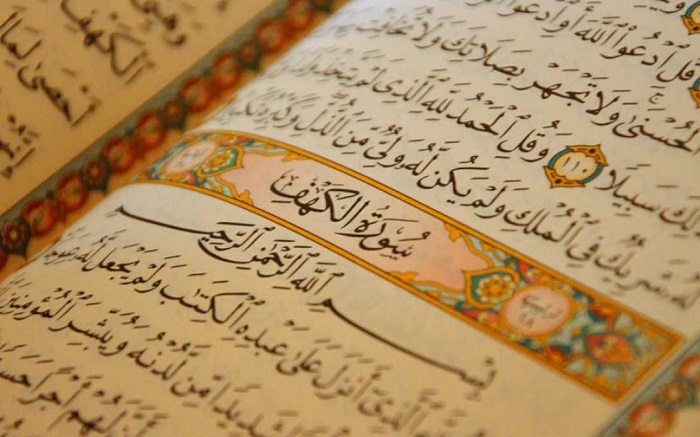 قُلِ ٱدْعُوا۟ ٱللَّهَ أَوِ ٱدْعُوا۟
ٱلْحُسْنَىٰ وَلَا تَجْهَرْ بِصَلَاتِكَ وَلَا تُخَافِتْ
سَبِيلًا ١١٠ وَقُلِ ٱلْحَمْدُ لِلَّهِ ٱلَّذِى لَمْ يَتَّخِذْ
شَرِيكٌ فِى ٱلْمُلْكِ وَلَمْ يَكُن لَّهُۥ وَلِىٌّ مِّنَ ٱلذُّلِّ وَكَبِّرْهُ تَكْبِيرًا
سُورَةُ الكَهْفِ
بِسْمِ ٱللَّهِ ٱلرَّحْمَٰنِ ٱلرَّحِيمِ
ٱلَّذِىٓ أَنزَلَ عَلَىٰ عَبْدِهِ ٱلْكِتَٰبَ وَلَمْ يَجْعَل لَّهُۥ
شَدِيدًا مِّن لَّدُنْهُ وَيُبَشِّرَ ٱلْمُؤْمِنِينَ
لَهُمْ أَجْرًا
ٱلْكَهْفِ
أَحْصَىٰ لِمَا